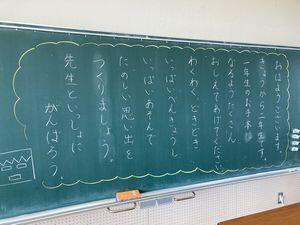 おはようございます。
きょうから二年生です。
一年生のお手本に
なるよう、たくさん
おしえてあげてください。
わくわく、どきどき、
いっぱいべんきょうし、
いっぱいあそんで
たのしい思い出を
つくりましょう。
先生といっしょに
がんばろう。